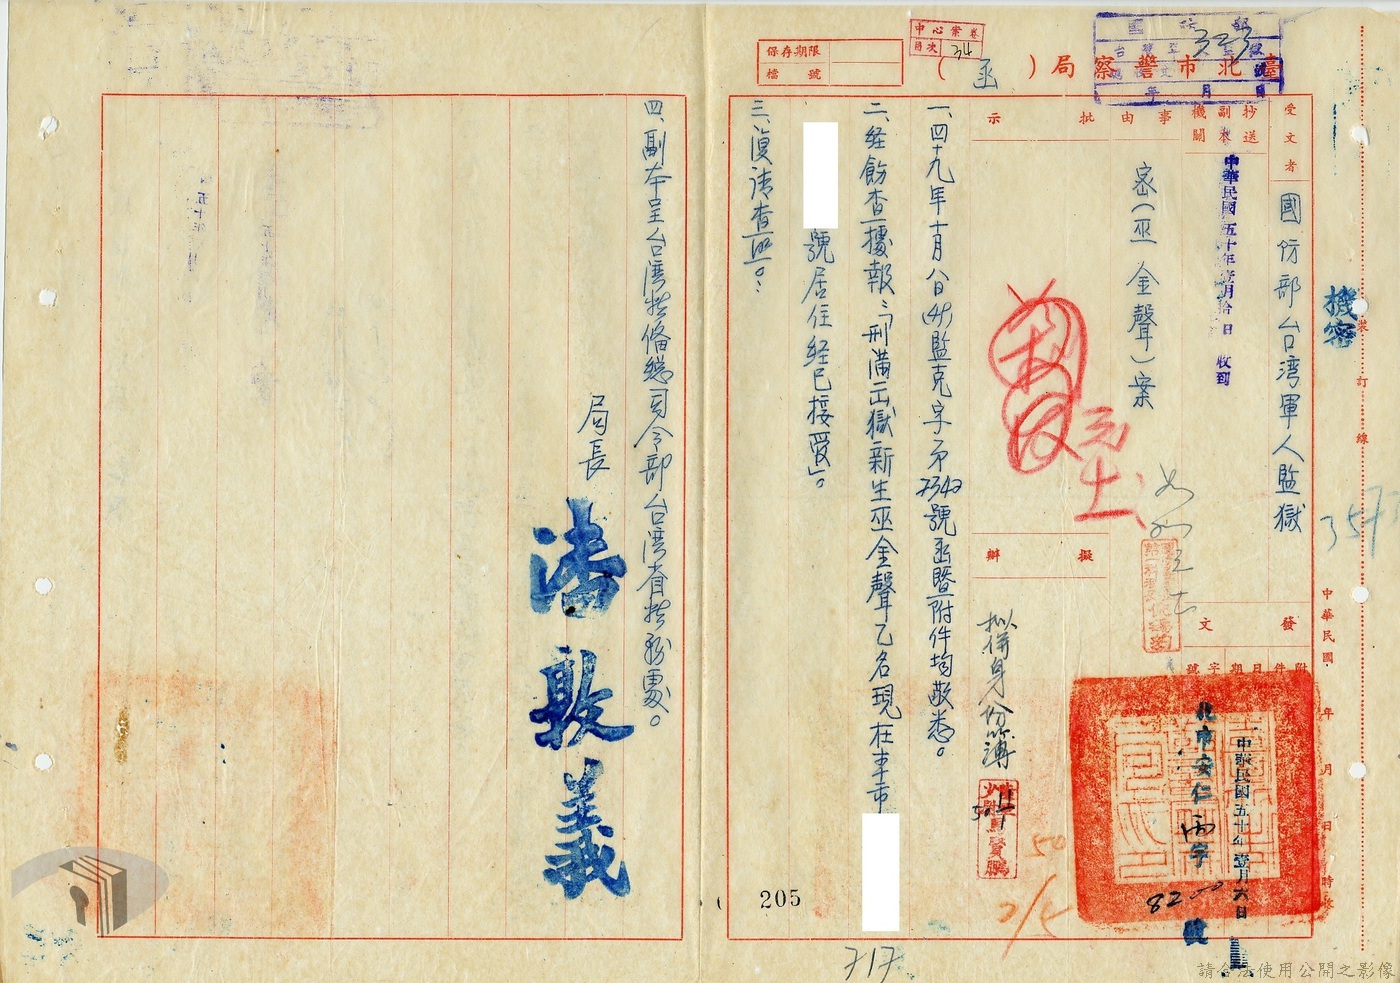 臺北市警察局(函)
保存期限
檔號
中心案卷
目次 34
323
機密
受文者
國防部台湾軍人監獄
抄送
副本
機關
中華民國五十年壹月拾日 收到
事由
密(巫金聲)案
批示
擬辦
拟併身份簿
發文
附件
日期
字號
中華民國五十年壹月六日
北市安仁
字
8200
號
一、四十九年十月八日(49)監克字第7342號函暨附件均敬悉。
二、経飭查據報:「刑滿出獄新生巫金聲乙名現在本市
號居住経已接受」。
三、復請查照。
四、副本呈台湾警備總司令部台湾省警務處。
局長
潘敦義
裝
訂
線
中華民國
年
月
日
時
357
205
717
請合法使用公開之影像